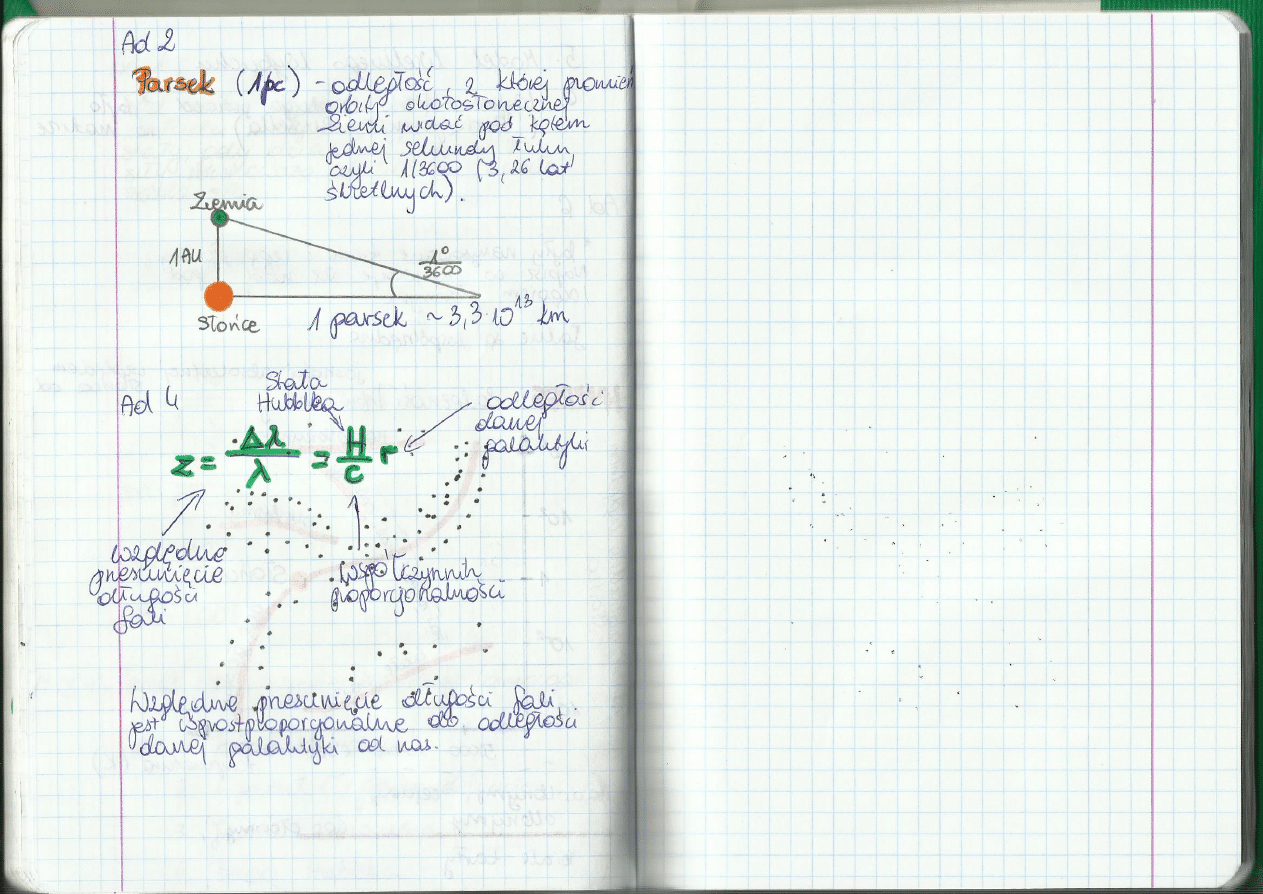 Ad 2
Parsek (1pc) - odległość, z której promień
orbity okołosłonecznej
Ziemi widać pod kątem
jednej sekundy łuku
czyli 1/3600 (3,26 lat
świetlnych).
Ziemia
1AU
1°
3600
Słońce
1 parsek ~ 3,3·10¹³ km
Ad 4
Stała
Hubble'a
odległości
danej
galaktyki
z = Δλ/λ = H/c r
względne
przesunięcie
długości
fali
współczynnik
proporcjonalności
Względne przesunięcie długości fali
jest wprostproporcjonalne do odległości
danej galaktyki od nas.